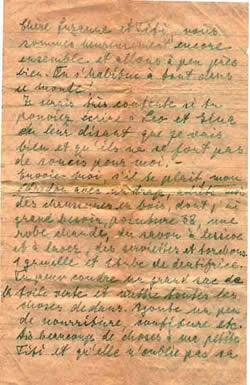 Chère Suzanne et Fifi, nous
sommes heureusement encore
ensemble et allons à peu près
bien. On s'habitue à tout dans
ce monde!
Je serais très contente si tu
pouvais écrire à Léo et
en leur disant que je vais
bien et qu'ils ne se font pas
de soucis pour moi. -
Envoie-moi s'il te plaît, mon
des chaussures en bois, dont j'ai
grand besoin, pointure 38, une
robe chaude, du savon à lessive
et à laver, des serviettes et torchons
1 gamelle et tube de dentifrice.
Tu peux coudre un grand sac de
toile verte et mettre toutes les
choses dedans. Ajoute un peu
de nourriture, confiture etc.
Dis beaucoup de choses à ma petite
Fifi et qu'elle n'oublie pas sa